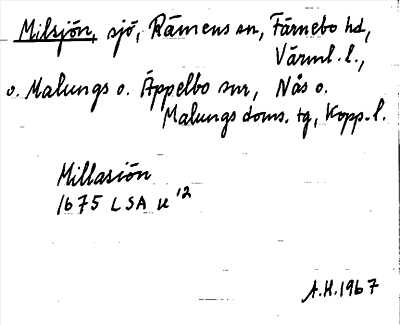 Milsjön, sjö, Rämens sn, Färnebo hd,
Värml. l.,
o. Malungs o. Äppelbo snr, Nås o.
Malungs doms. tg, Kopp. l.
Millasiön
1675 LSA U 12
A.H. 1967